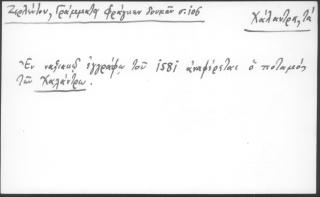 Ζερλέντου, Γράμματα Φράγκων δουκῶν σ. 106
Χάλαντρα, τά
Ἐν ναξιακῷ ἐγγράφῳ τοῦ 1581 ἀναφέρεται ὁ ποταμός
τῶν Χαλάντρω.